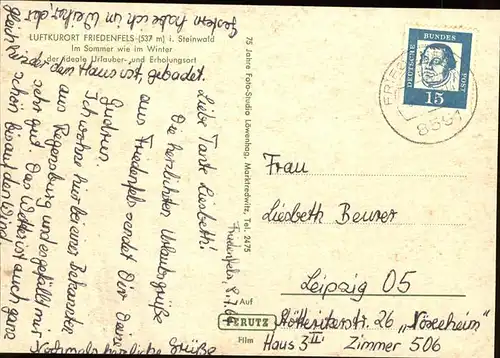 Gestern habe ich im Weiher, der
LUFTKURORT FRIEDENFELS (537 m) i. Steinwald
Im Sommer wie im Winter
der ideale Urlauber- und Erholungsort
vor dem Haus ist, gebadet.
Liebe Tante Liesbeth!
Die herrlichsten Urlaubsgrüße
aus Friedenfels sendet Dir Deine
Gudrun.
Ich wohne hier bei einer Bekannten
aus Regensburg und es gefällt mir
sehr gut. Das Wetter ist auch ganz
schön bis auf den Wind.
Nochmals herzliche Grüße
Friedenfels, 8.7.
75 Jahre Foto-Studio Löwenhag, Marktredwitz, Tel. 2475
Auf
PERUTZ
Film
DEUTSCHE BUNDESPOST
15
FRIED
8591
Frau
Liesbeth Beurer
Leipzig O5
Stötteritzerstr. 26
Haus 3 III Zimmer 506